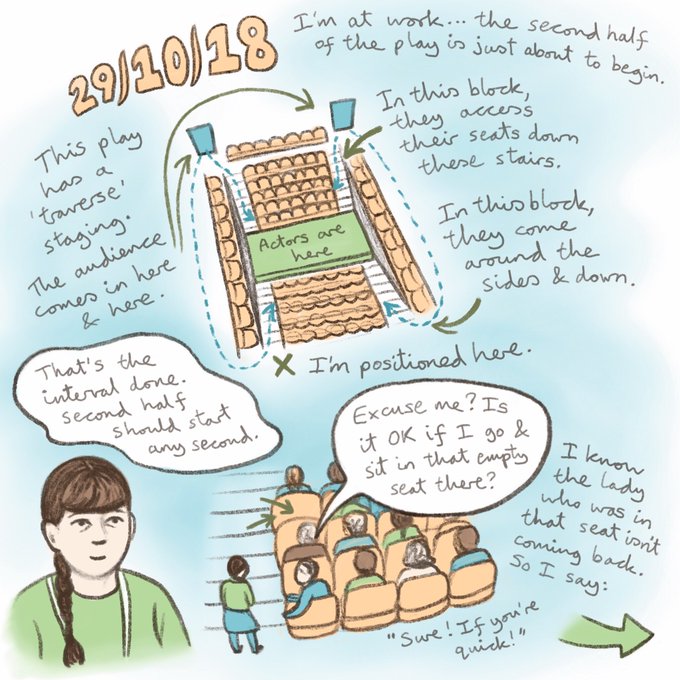 29/10/18
I'm at work... the second half
of the play is just about to begin.
This play
has a
'traverse'
staging.
The audience
comes in here
& here.
In this block,
they access
their seats down
these stairs.
Actors are
here
In this block,
they come
around the
sides & down.
X I'm positioned here.
That's the
interval done.
second half
should start
any second.
Excuse me? Is
it OK if I go &
sit in that empty
seat there?
I know
the lady
who was in
that seat isn't
coming back.
So I say:
"Sure! If you're
quick!"